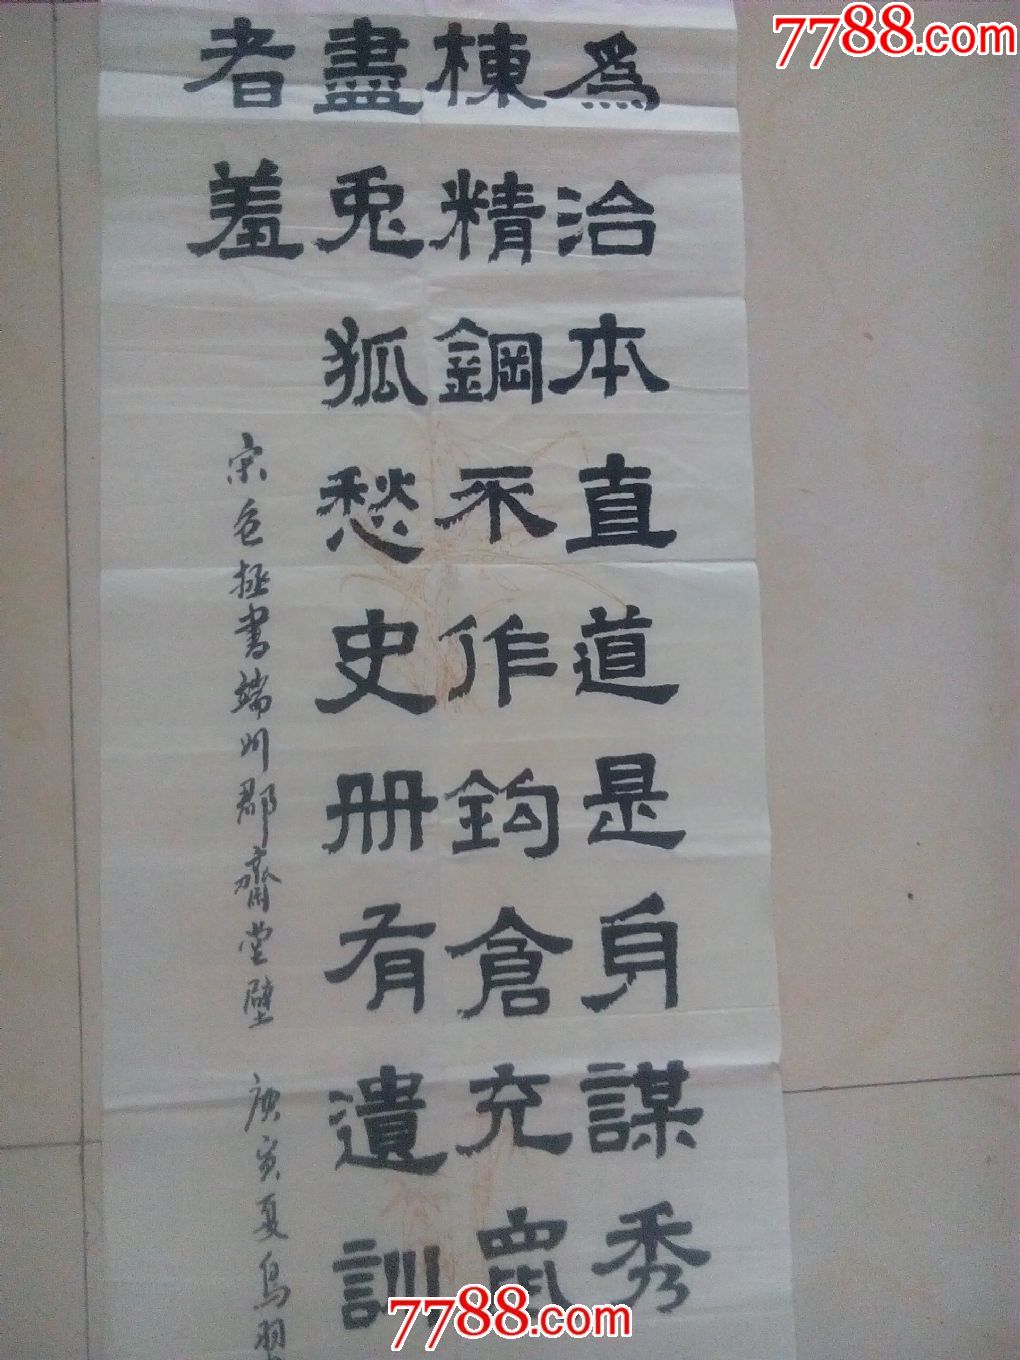 7788.com
爲治本直道是身謀秀
棟精鋼不作鉤倉充鼠
盡兎狐愁史册有遺訓
者羞
宋包拯書端州郡齋堂壁 庚寅夏
7788.com